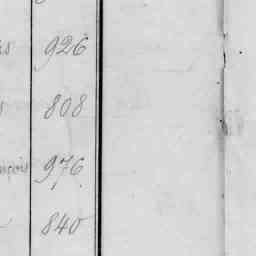 926
808
976
840